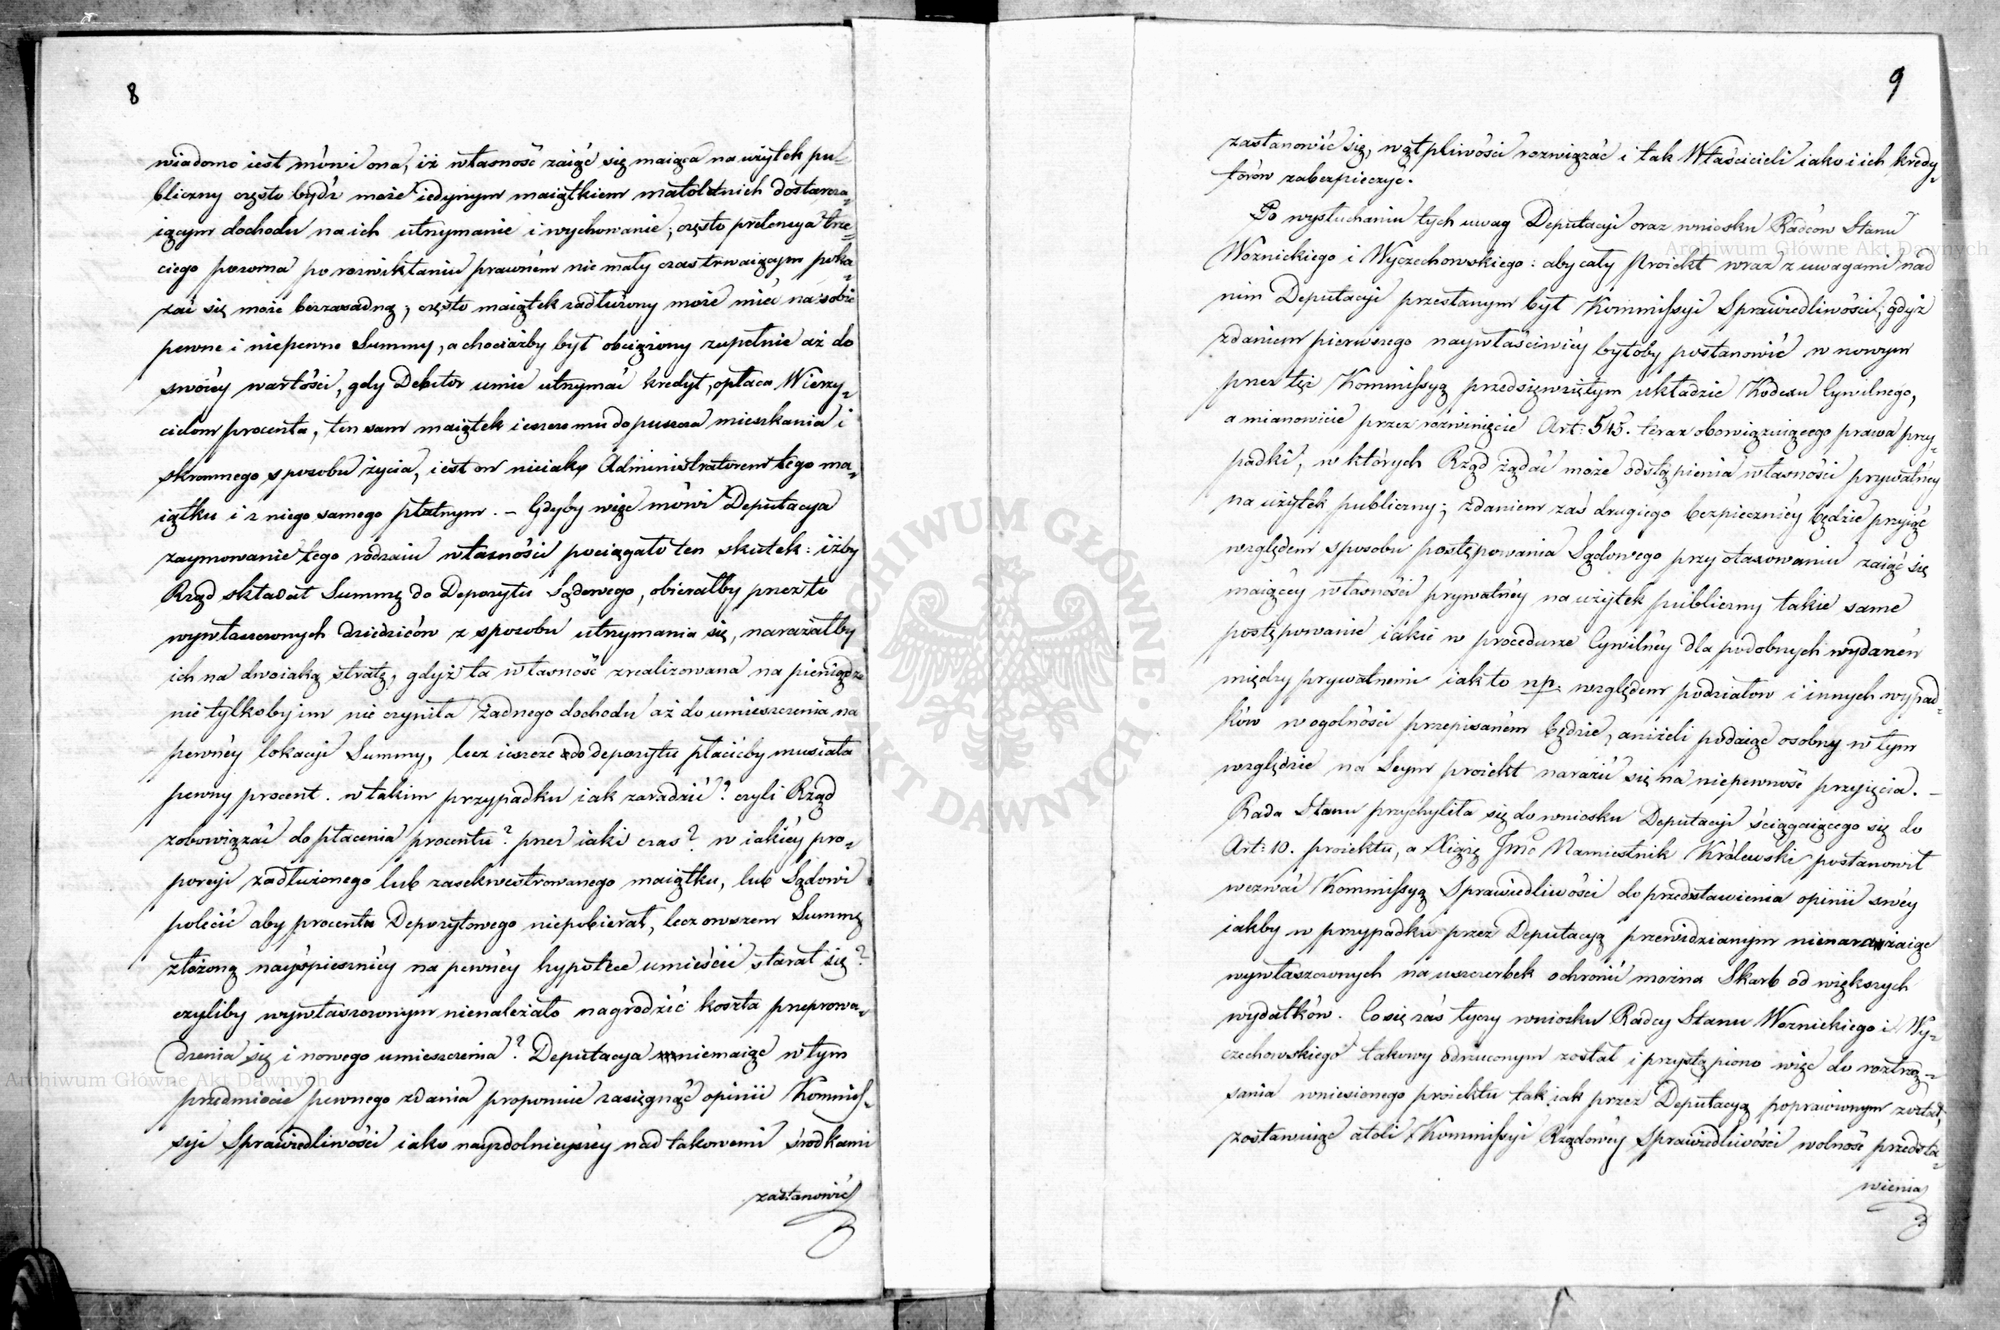 8
wiadomo iest mówi ona, iż własność zaiąć się maiąca na użytek pu-
bliczny często bydź może iedynym maiątkiem małoletnich dostarcza-
iącym dochodu na ich utrzymanie i wychowanie; często pretensya trze-
ciego pozorna po rozwikłaniu prawném nie mały czas trwaiącym poka-
zać się może bezzasadną; często maiątek zadłużony może mieć na sobie
pewne i niepewne Summy, a chociażby był obciążony zupełnie aż do
swoiéy wartości, gdy Debitor umie utrzymać kredyt, opłaca Wierzy-
cielom procenta, ten sam maiątek ieszcze mu dopuszcza mieszkania i
skromnego sposobu życia, iest on nieiako Administratorem tego ma-
iątku i z niego samego płatnym. – Gdyby więc mówi Deputacya
zaymowanie tego rodzaiu własności pociągało ten skutek: iżby
Rząd składał Summę do Depozytu Sądowego, obierałby przez to
wywłaszczonych dziedziców z sposobu utrzymania się, narażałby
ich na dwoiaką stratę, gdyż ta własność zrealizowana na pieniądze
nie tylkoby im nie czyniła żadnego dochodu aż do umieszczenia na
pewnéy lokacyi Summy, lecz ieszcze do depozytu płacićby musiała
pewny procent. w takim przypadku iak zaradzić? czyli Rząd
zobowiązać do płacenia procentu? przez iaki czas? w iakiéy pro-
porcyi zadłużonego lub zasekwestrowanego maiątku, lub Sądowi
polecić aby procentu Depozytowego niepobierał, lecz owszem Summę
złożoną nayśpieszniéy na pewnéy hypotece umieścić starał się?
czyliby wywłaszczonym nienależało nagrodzić koszta przeprowa-
dzenia się i nowego umieszczenia? Deputacya niemaiąc w tym
przedmiocie pewnego zdania proponuie zasięgnąć opinii Kommis-
syi Sprawiedliwości iako nayzdolnieyszéy nad takowemi środkami
zastanowić
9
zastanowić się, wątpliwości rozwiązać i tak Właścicieli iako i ich kredy-
torów zabezpieczyć.
Po wysłuchaniu tych uwag Deputacyi oraz wniosku Radców Stanu
Woźnickiego i Wyczechowskiego: aby cały Proiekt wraz z uwagami nad
nim Deputacyi przesłanym był Kommissyi Sprawiedliwości; gdyż
zdaniem pierwszego naywłaściwiéy byłoby postanowić w nowym
przez tęż Kommissyą przedsięwziętym układzie Kodexu Cywilnego,
a mianowicie przez rozwinięcie Art: 545. teraz obowiązuiącego prawa przy-
padki, w których Rząd żądać może odstąpienia własności prywatnéy
na użytek publiczny; zdaniem zaś drugiego bezpieczniéy będzie przyiąć
względem sposobu postępowania Sądowego przy otaxowaniu zaiąć się
maiącéy własności prywatnéy na użytek publiczny takie same
postępowanie iakie w procedurze Cywilnéy dla podobnych wydarzeń
między prywatnemi iak to np. względem podziałów i innych wypad-
ków w ogolności przepisaném będzie, aniżeli podaiąc osobny w tym
względzie na Seym proiekt narazić się na niepewność przyięcia. –
Rada Stanu przychyliła się do wniosku Deputacyi ściągaiącego się do
Art: 10. proiektu, a Xiążę Jmć Namiestnik Królewski postanowił
wezwać Kommissyą Sprawiedliwości do przedstawienia opinii swéy
iakby w przypadku przez Deputacyą przewidzianym nienarażaiąc
wywłaszczonych na uszczerbek ochronić można Skarb od większych
wydatków. Co się zaś tyczy wniosku Radcy Stanu Woznickiego i Wy-
czechowskiego takowy odrzuconym został i przystąpiono więc do roztrzą-
sania wniesionego proiektu tak iak przez Deputacyą poprawionym został,
zostawuiąc atoli Kommissyi Rządowéy Sprawiedliwości wolność przedsta-
wienia
Archiwum Główne Akt Dawnych
Archiwum Główne Akt Dawnych
ARCHIWUM GŁÓWNE AKT DAWNYCH